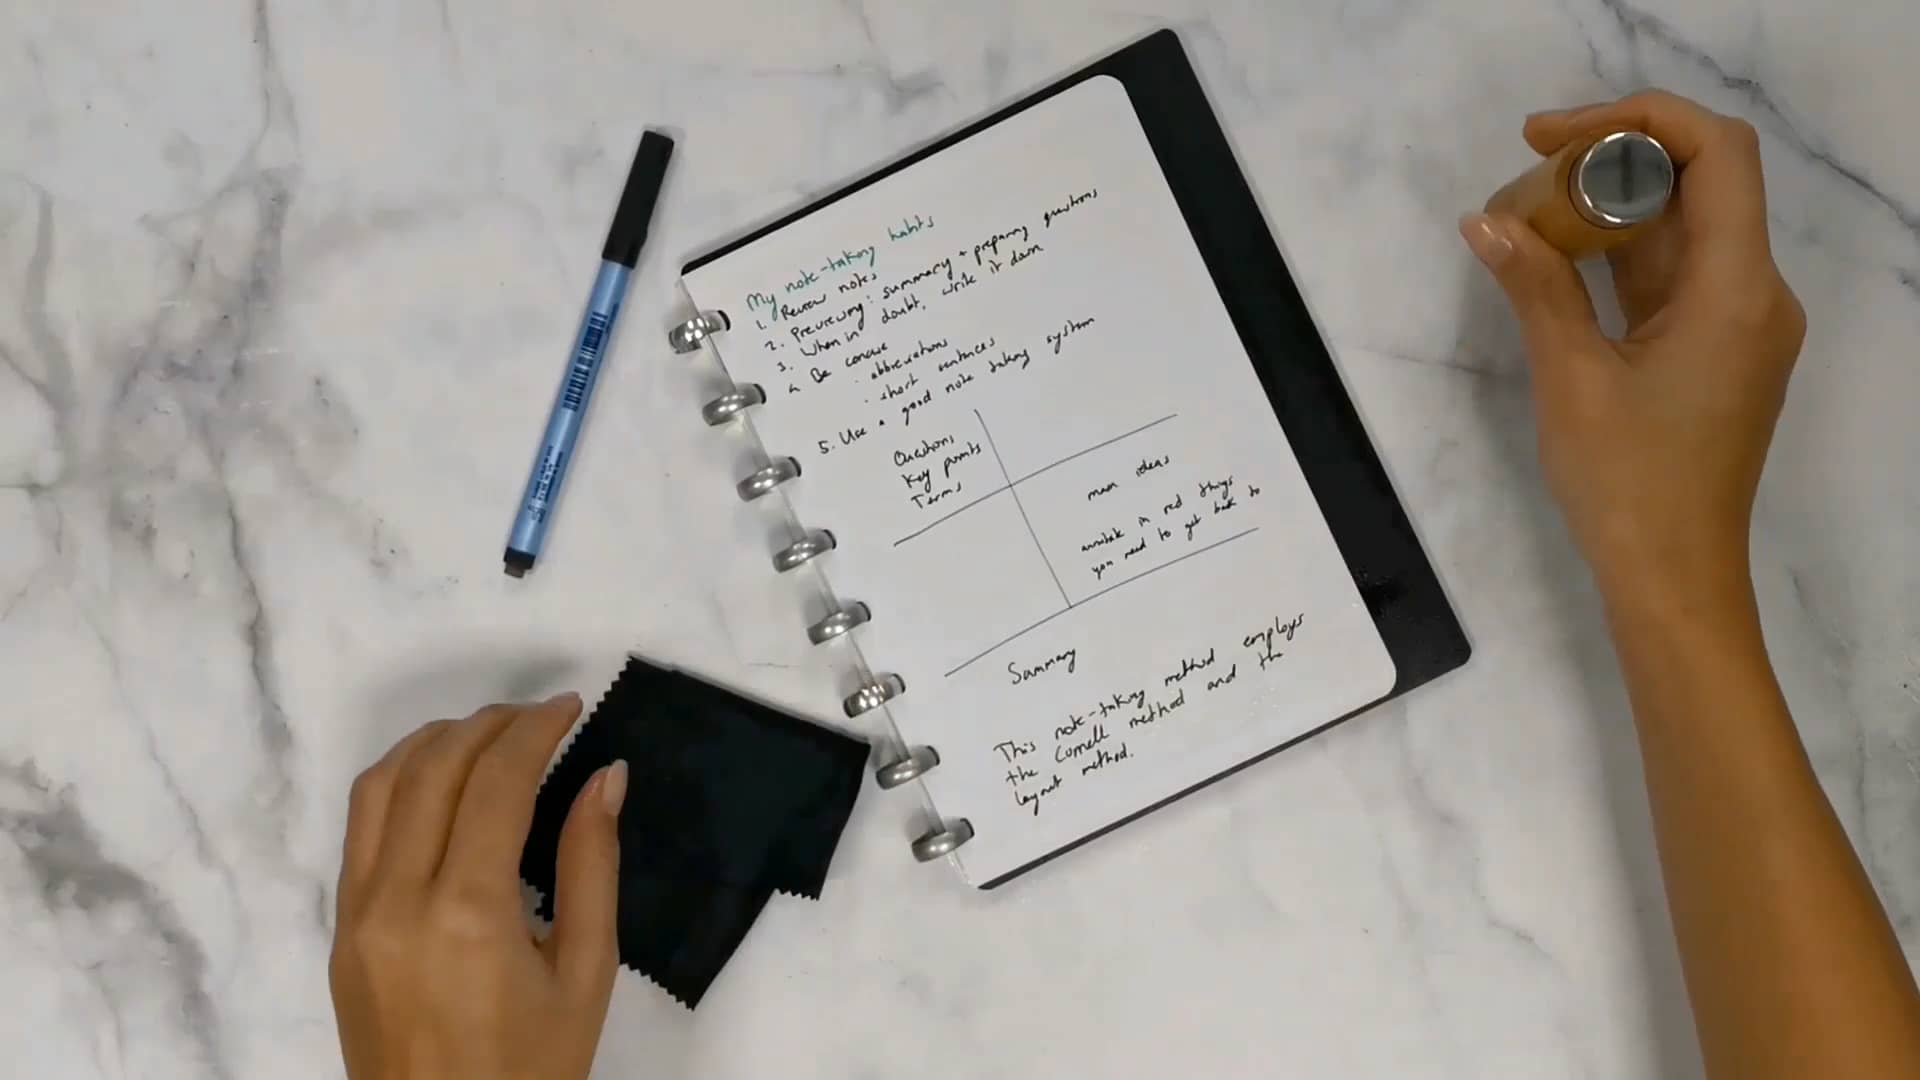 My note-taking habits
1. Review notes
2. Previewing: summary + preparing questions
3. When in doubt, write it down
4. Be concise
· abbreviations
· short sentences
5. Use a good note taking system
Questions
Key points
Terms
main ideas
annotate in red things
you need to get back to
Summary
This note-taking method employs
the Cornell method and the
layout method.